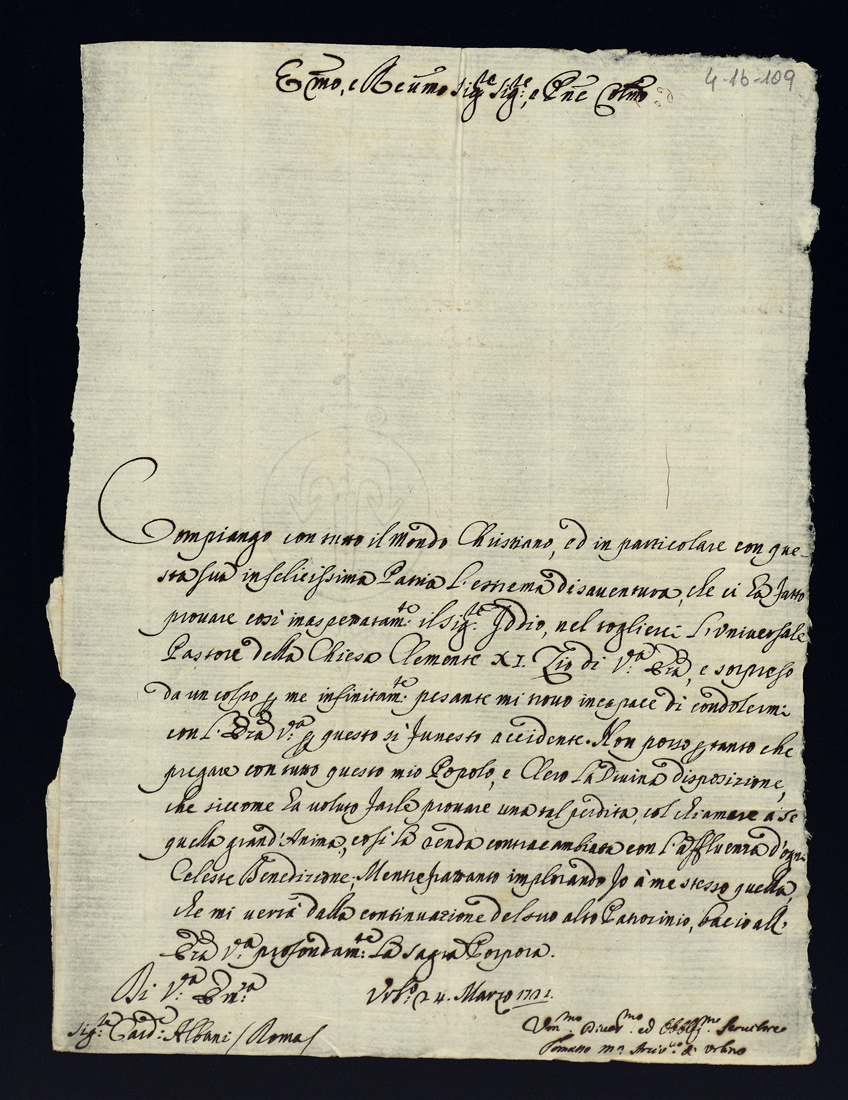 4-16-109
Emo, e Reumo Sigre Sigre, e Pne Colmo
Compiango con tutto il Mondo Christiano, ed in particolare con que-
sta sua infelicissima Patria l'estrema disaventura, che ci hà fatto
provare così inasperatamte: il Sigre Iddio, nel toglierci l'Universale
Pastore della Chiesa Clemente XI. Zio di Va: Emã, e sorpreso
da un colpo p me infinitamte: pesante mi trovo incapace di condolermi
con l'Emã Va: p questo sì funesto accidente. Non posso ptanto che
pregare con tutto questo mio Popolo, e Clero la Divina disposizione,
che siccome hà voluto farle provare una tal perdita, col chiamare à Se
quella grand'Anima, così la renda contracambiata con l'affluenza d'ogni
Celeste Benedizione; Mentre frattanto implorando Io à me stesso quella,
che mi verrà dalla continuazione del suo alto Patrocinio, bacio all'
Emã Va: profondamte: la Sagra Porpora.
Di Va: Emza
Urbo: 24. Marzo 1721.
Sigre: Card: Albani / Roma /
Umo: Divmo: ed Obblmo: Servitore
Tomasso Ma Arcivo: di Urbino